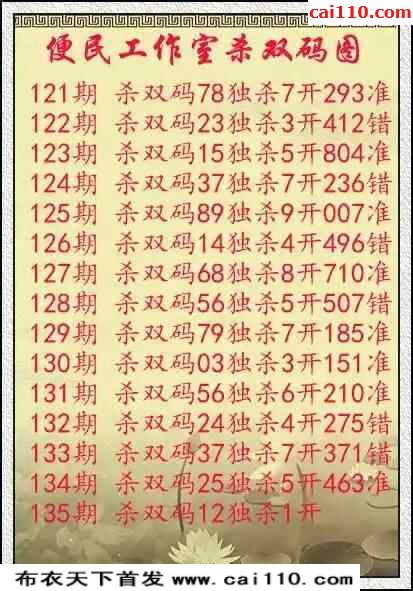 cai110.com
便民工作室杀双码图
121期 杀双码78独杀7开293准
122期 杀双码23独杀3开412错
123期 杀双码15独杀5开804准
124期 杀双码37独杀7开236错
125期 杀双码89独杀9开007准
126期 杀双码14独杀4开496错
127期 杀双码68独杀8开710准
128期 杀双码56独杀5开507错
129期 杀双码79独杀7开185准
130期 杀双码03独杀3开151准
131期 杀双码56独杀6开210准
132期 杀双码24独杀4开275错
133期 杀双码37独杀7开371错
134期 杀双码25独杀5开463准
135期 杀双码12独杀1开
布衣天下首发 www.cai110.com